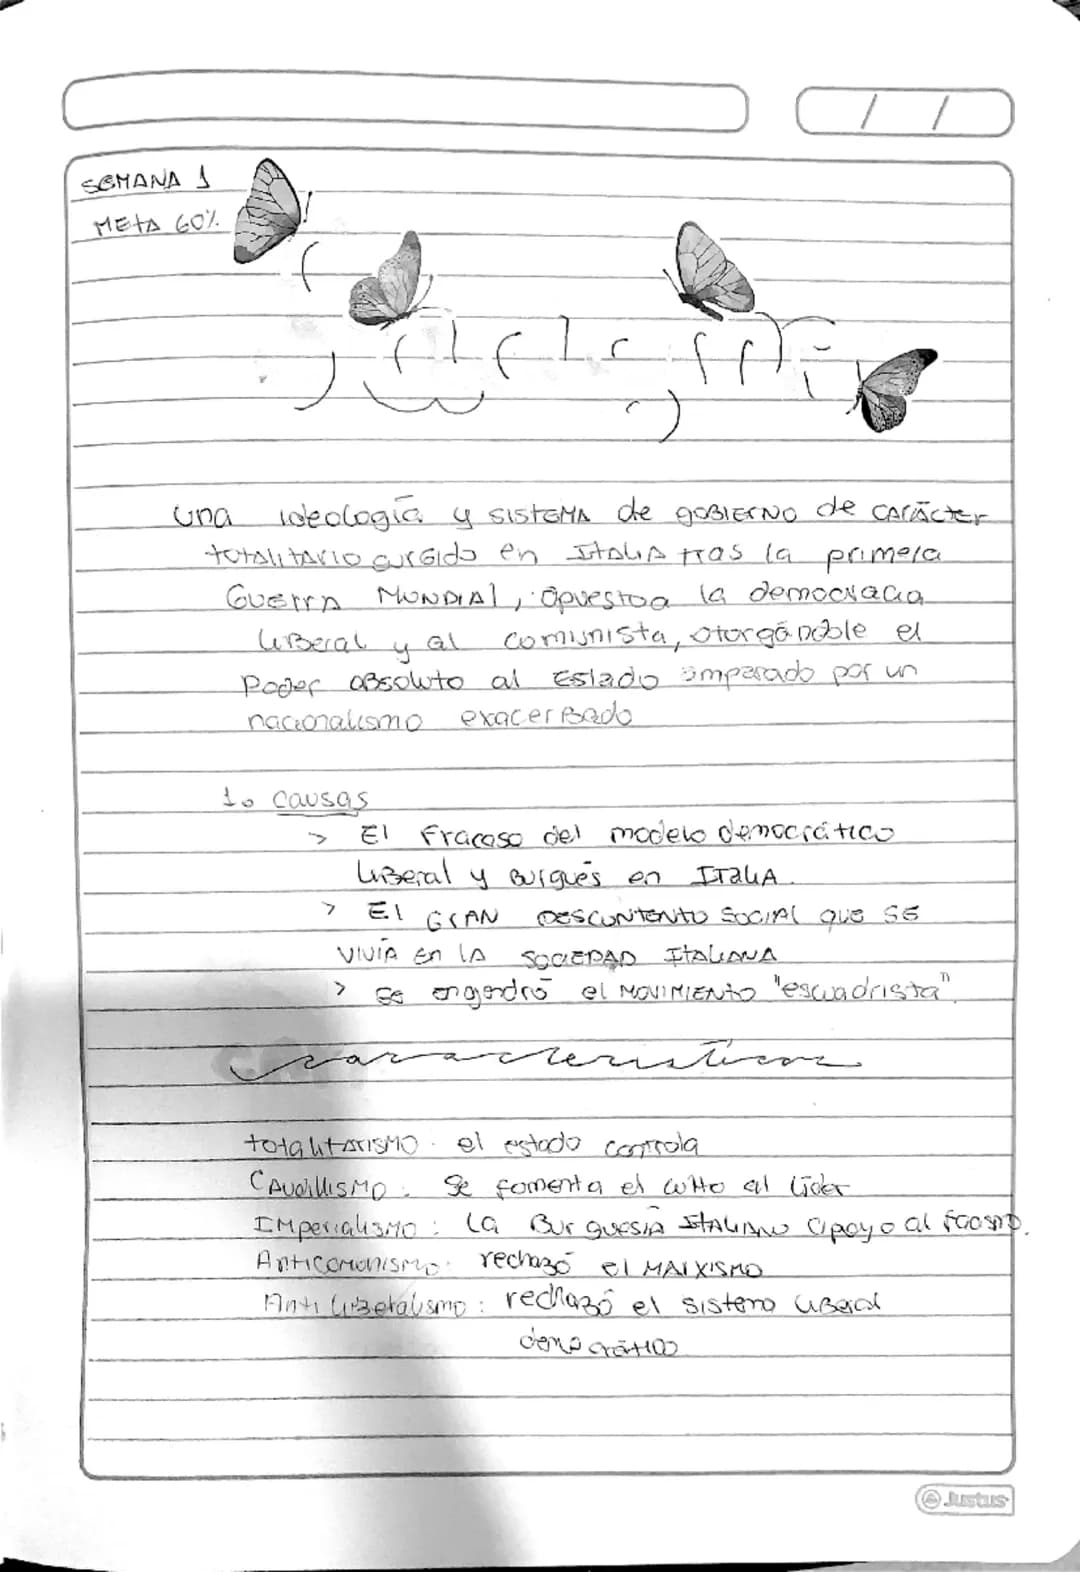 SEMANA 1
META 60%
una ideología y SISTEMA de gOBIERNO de CARÁCTER
TOTALITARIO surgido en ITALIA tras la primera
GUERRA MUNDIAl, opuesto a la democracia
liBeral y al comunista, otorgándole el
Poder aBsoluto al Estado amparado por un
nacionalismo exacerBado
1. Causas
> El Fracaso del modelo democrático
liBeral y Burgués en ITaliA.
> El GRAN DESCONTENTO SOCIAL QUE SE
VIVÍA En lA SOCIEDAD ITALIANA
> se engendró el MOVIMIENTO "escuadrista".
Características
totalitARISMO : el estado controla
CAUdillISMO : Se fomenta el culto al líder
IMperialisMO : la BurguesíA ITALIANA apoyo al fascismo.
AnticomunisMo : rechazó el MARXISMO
Anti liBeralismo : rechazó el sistema liBeral
democrático
Justus